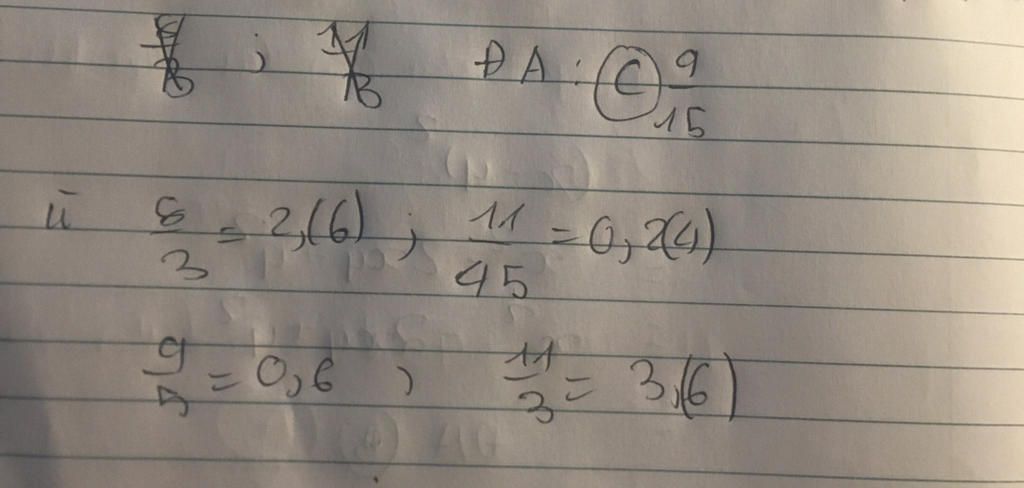 8/3 ; 11/3 ĐA : C 9/15
ii 8/3 = 2,(6) ; 11/45 = 0,2(4)
9/5 = 0,6 , 11/3 = 3,(6)